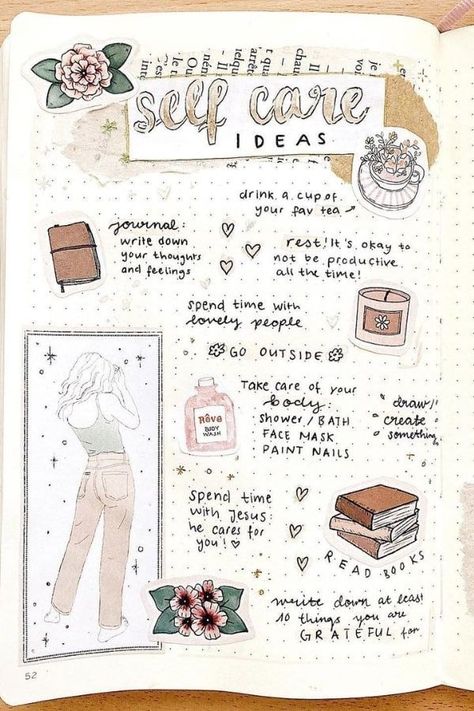 self care
IDEAS
drink a cup of
your fav tea
journal:
write down
your thoughts
and feelings
rest! It's okay to
not be productive
all the time!
spend time with
lovely people
GO OUTSIDE
Take care of your
body:
shower / BATH
FACE MASK
PAINT NAILS
draw/
create
something
Rêve
BODY
WASH
spend time
with Jesus:
he cares for
you!
READ BOOKS
write down at least
10 things you are
GRATEFUL for
52